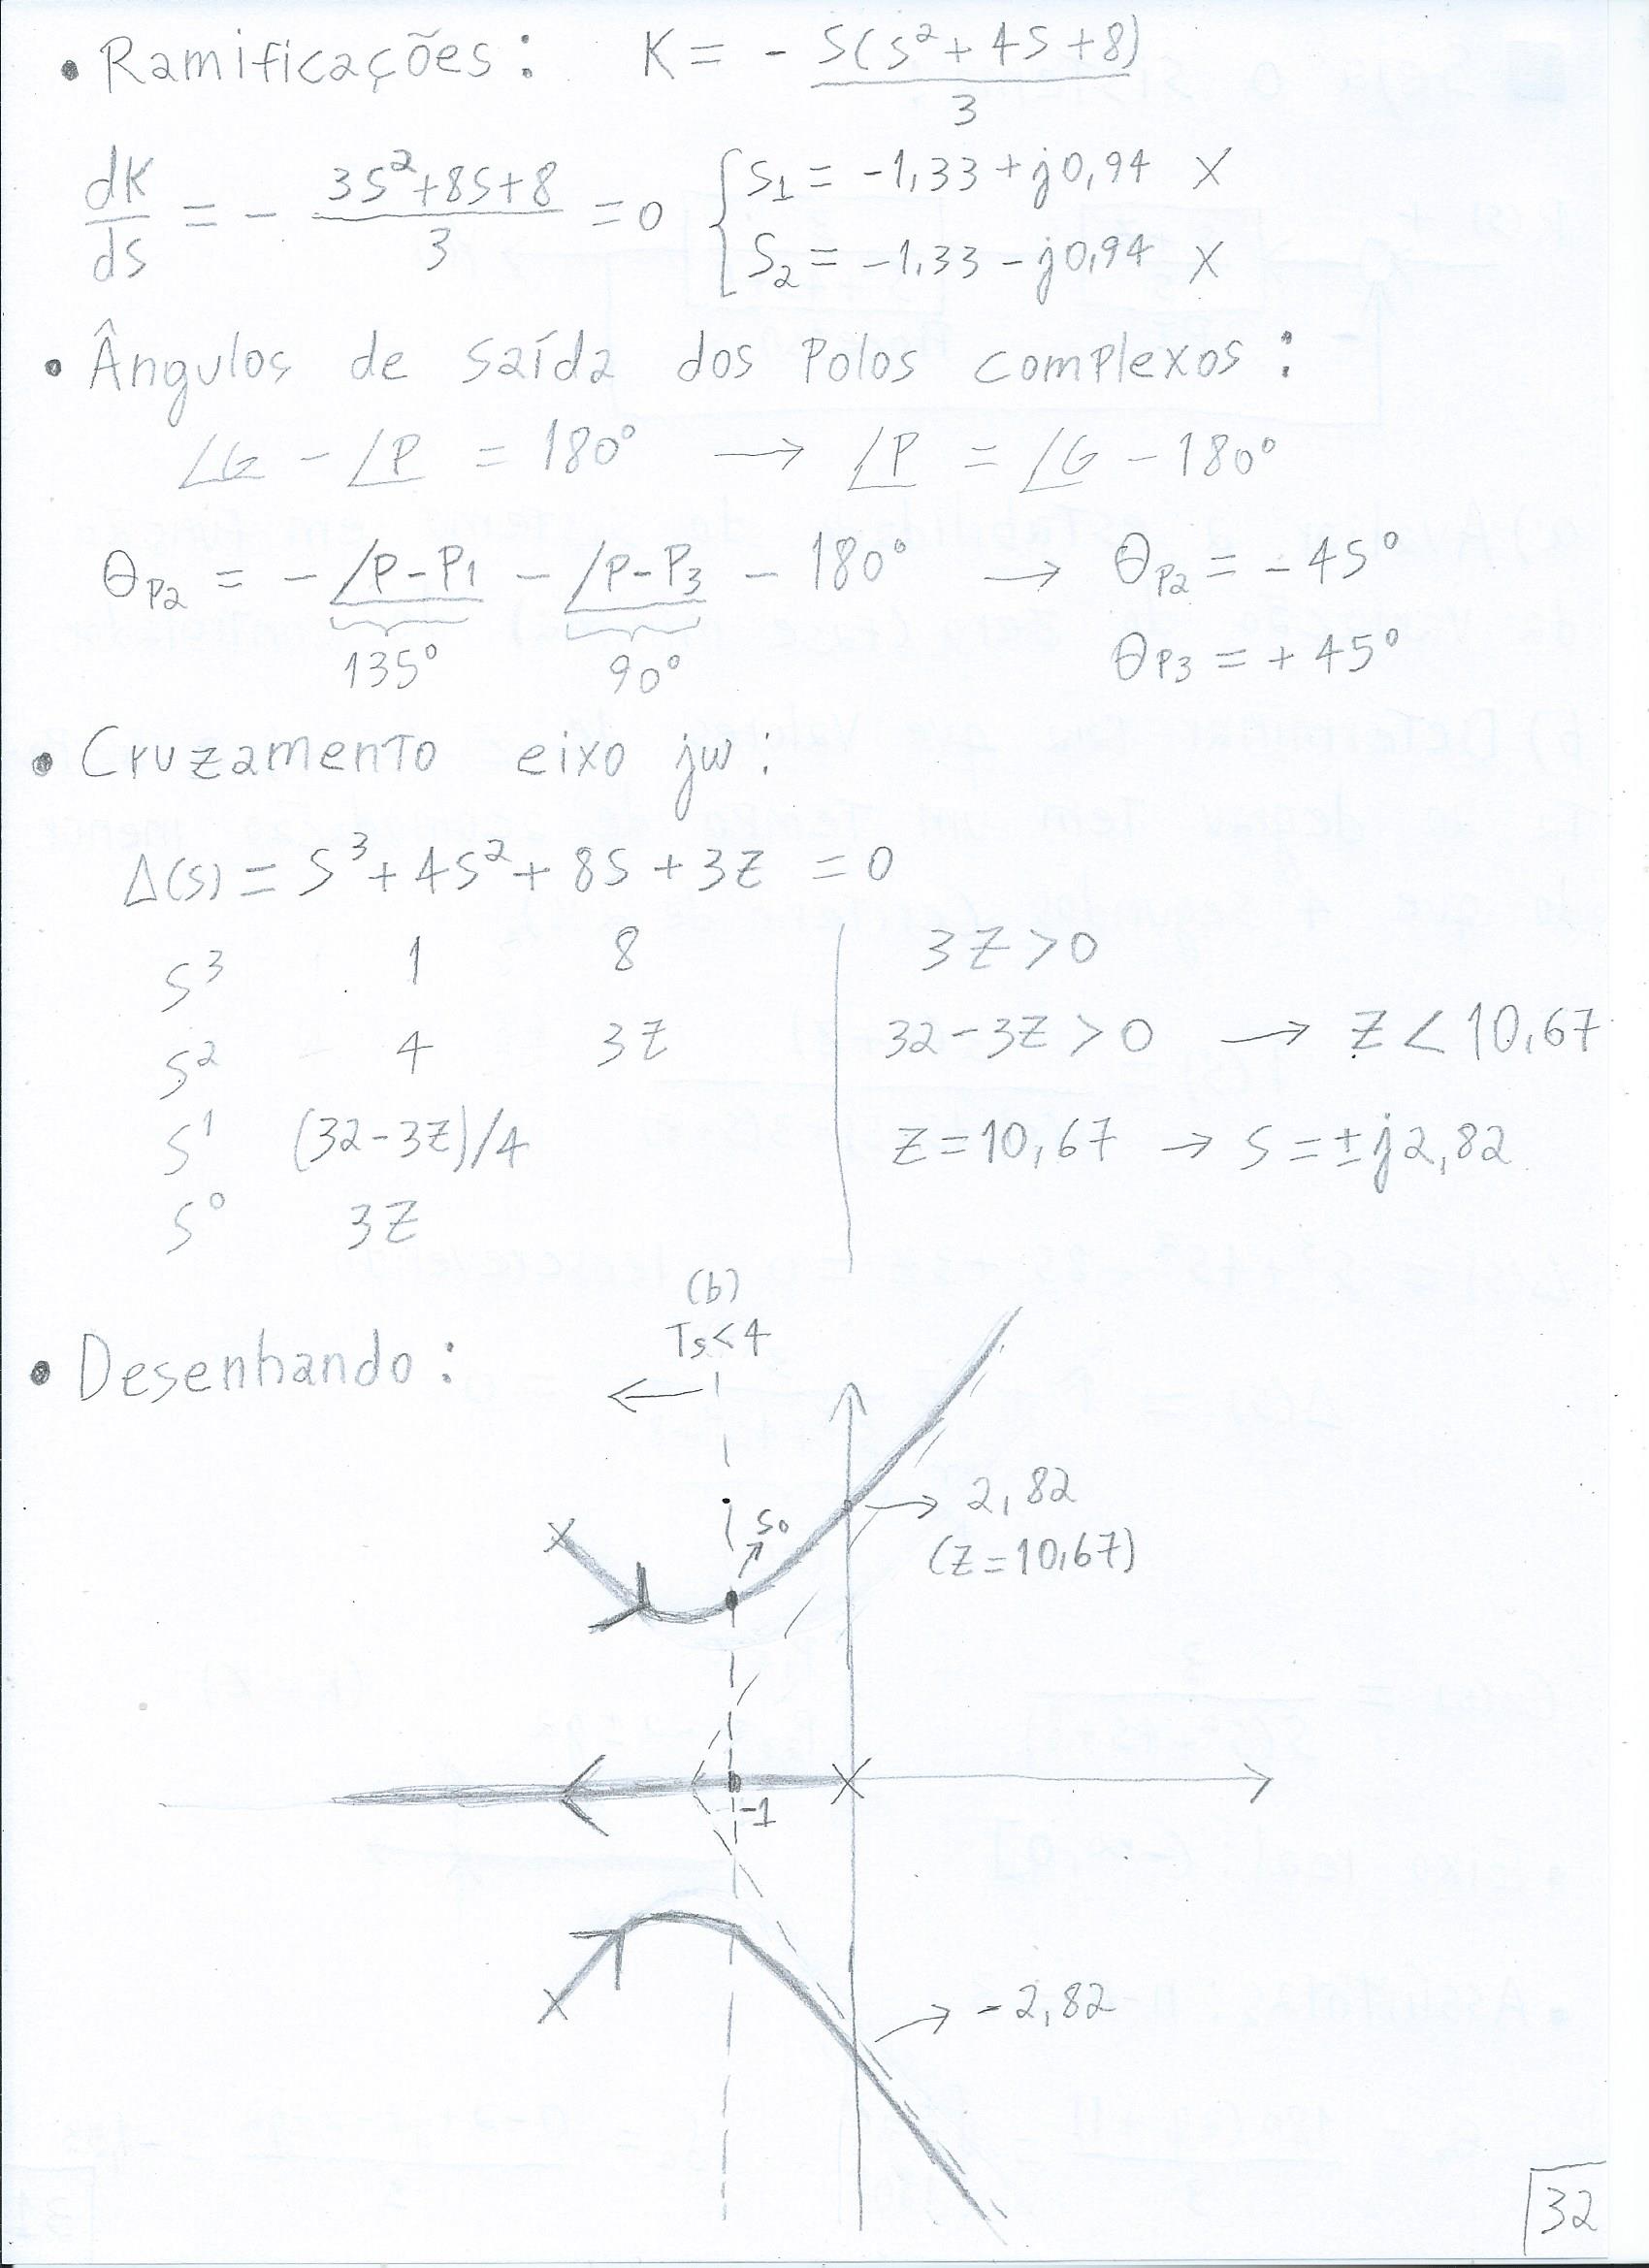 • Ramificações: K = - S(S²+4S+8)/3
dK/dS = - (3S²+8S+8)/3 = 0 { S1 = -1,33 + j0,94 X
S2 = -1,33 - j0,94 X
• Ângulos de saída dos Polos complexos:
∠G - ∠P = 180° → ∠P = ∠G - 180°
θP2 = - ∠P-P1 - ∠P-P3 - 180° → θP2 = -45°
135° 90° θP3 = +45°
• Cruzamento eixo jw:
Δ(S) = S³ + 4S² + 8S + 3Z = 0
S³ 1 8 3Z > 0
S² 4 3Z 32-3Z > 0 → Z < 10,67
S¹ (32-3Z)/4 Z = 10,67 → S = ±j2,82
S⁰ 3Z
(b)
Ts<4
• Desenhando:
2,82
S0
(Z=10,67)
-1
-2,82
32